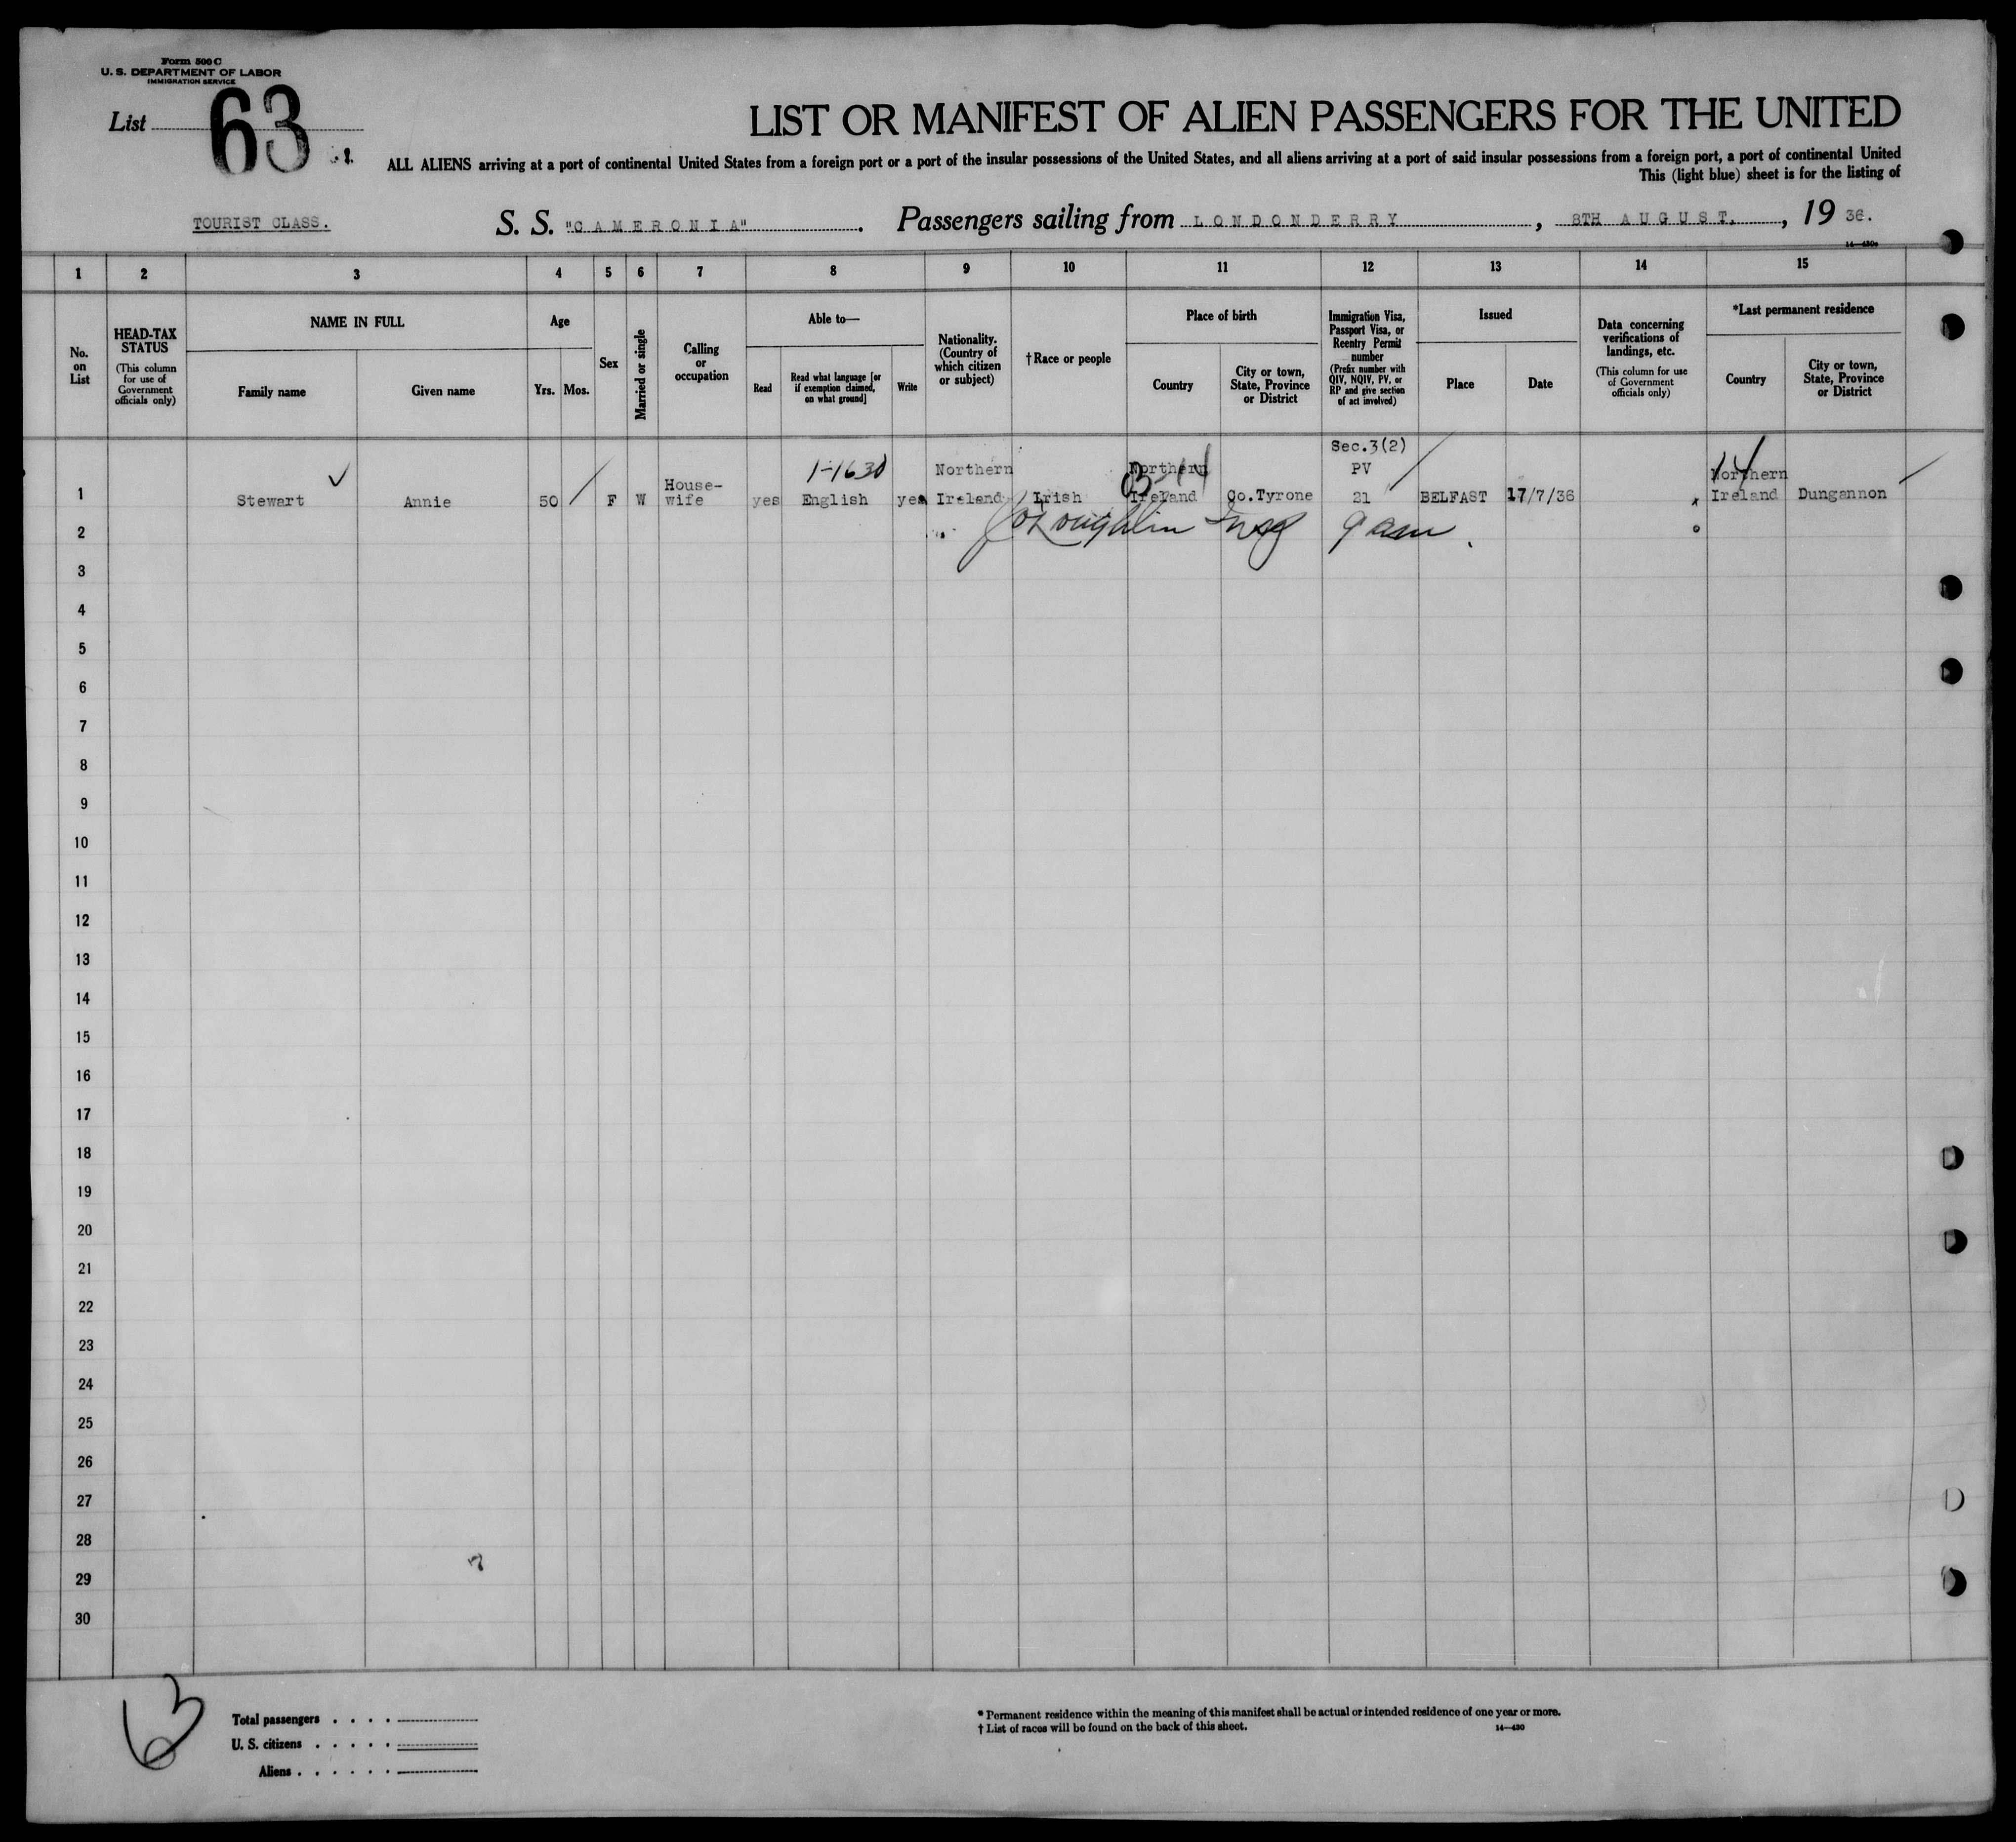 Form 500 C
U. S. DEPARTMENT OF LABOR
IMMIGRATION SERVICE
List 63
LIST OR MANIFEST OF ALIEN PASSENGERS FOR THE UNITED
ALL ALIENS arriving at a port of continental United States from a foreign port or a port of the insular possessions of the United States, and all aliens arriving at a port of said insular possessions from a foreign port, a port of continental United
This (light blue) sheet is for the listing of
TOURIST CLASS. S. S. "CAMERONIA". Passengers sailing from LONDONDERRY, 8TH AUGUST, 1936.
14—430
1 2 3 4 5 6 7 8 9 10 11 12 13 14 15
No. on List
HEAD-TAX STATUS
(This column for use of Government officials only)
NAME IN FULL
Family name Given name
Age
Yrs. Mos.
Sex
Married or single
Calling or occupation
Able to—
Read
Read what language [or if exemption claimed, on what ground]
Write
Nationality. (Country of which citizen or subject)
†Race or people
Place of birth
Country
City or town, State, Province or District
Immigration Visa, Passport Visa, or Reentry Permit number
(Prefix number with QIV, NQIV, PV, or RP and give section of act involved)
Issued
Place Date
Data concerning verifications of landings, etc.
(This column for use of Government officials only)
*Last permanent residence
Country
City or town, State, Province or District
Sec.3(2)
1-1630 Northern Northern PV 14 Northern
1 Stewart Annie 50 F W House-wife yes English yes Ireland Irish Ireland Co.Tyrone 21 BELFAST 17/7/36 Ireland Dungannon
2
3
4
5
6
7
8
9
10
11
12
13
14
15
16
17
18
19
20
21
22
23
24
25
26
27
28
29
30
63
Total passengers . . . .
U. S. citizens . . . . .
Aliens . . . . . .
* Permanent residence within the meaning of this manifest shall be actual or intended residence of one year or more.
† List of races will be found on the back of this sheet. 14—430